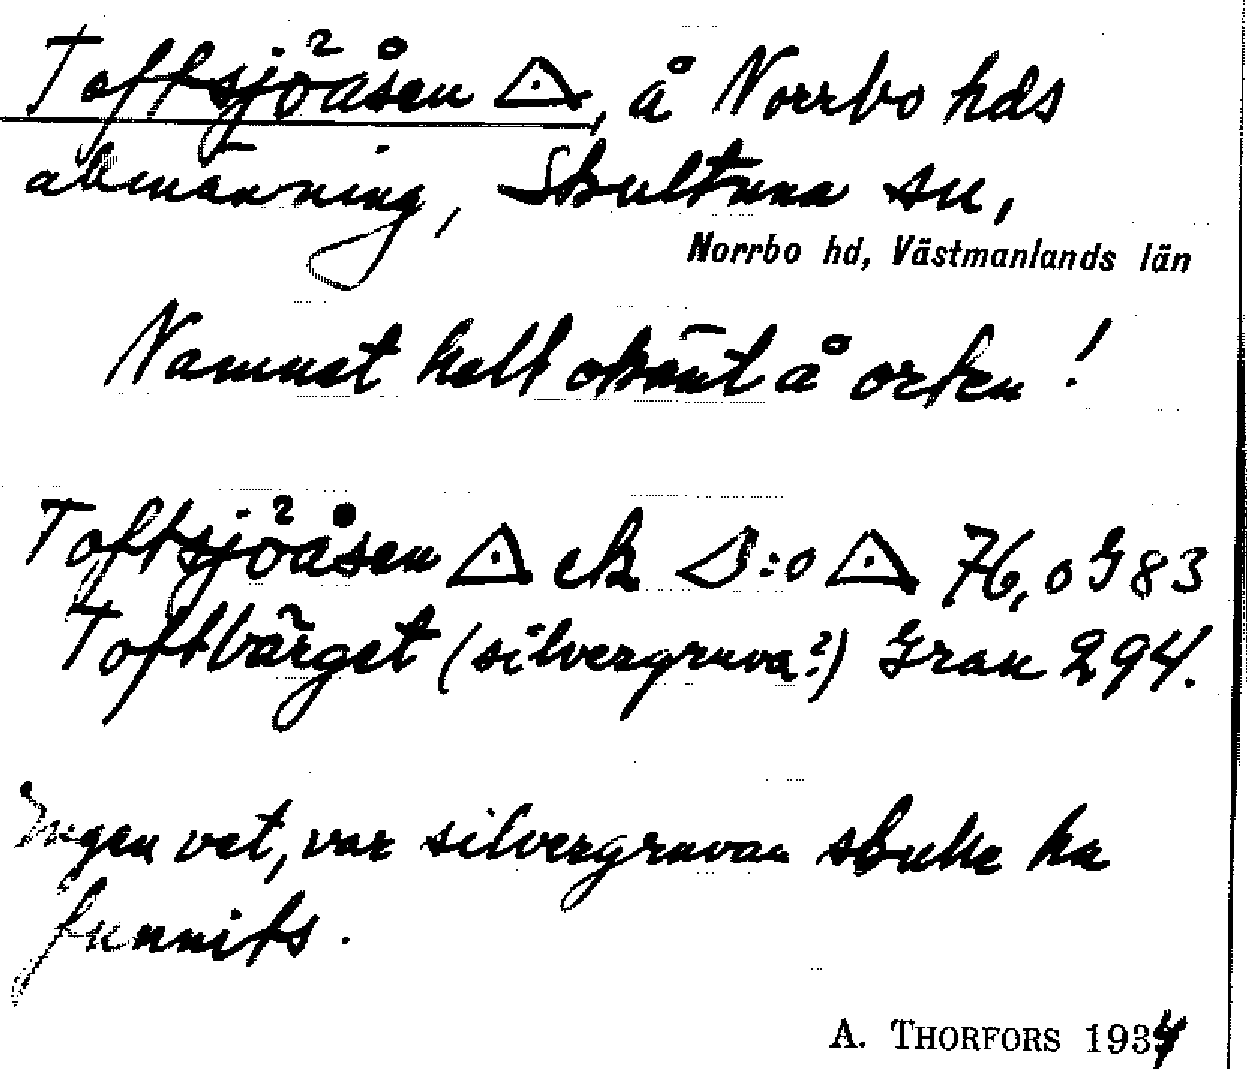 Toftsjöåsen △, å Norrbo hds
allmänning, Skultuna sn,
Norrbo hd, Västmanlands län
Namnet helt okänt å orten!
Toftsjöåsen △ ek S:o △ 76,0 G 83
Toftbärget (silvergruva?) Gran 294.
Ingen vet, var silvergruvan skulle ha
funnits.
A. THORFORS 1934